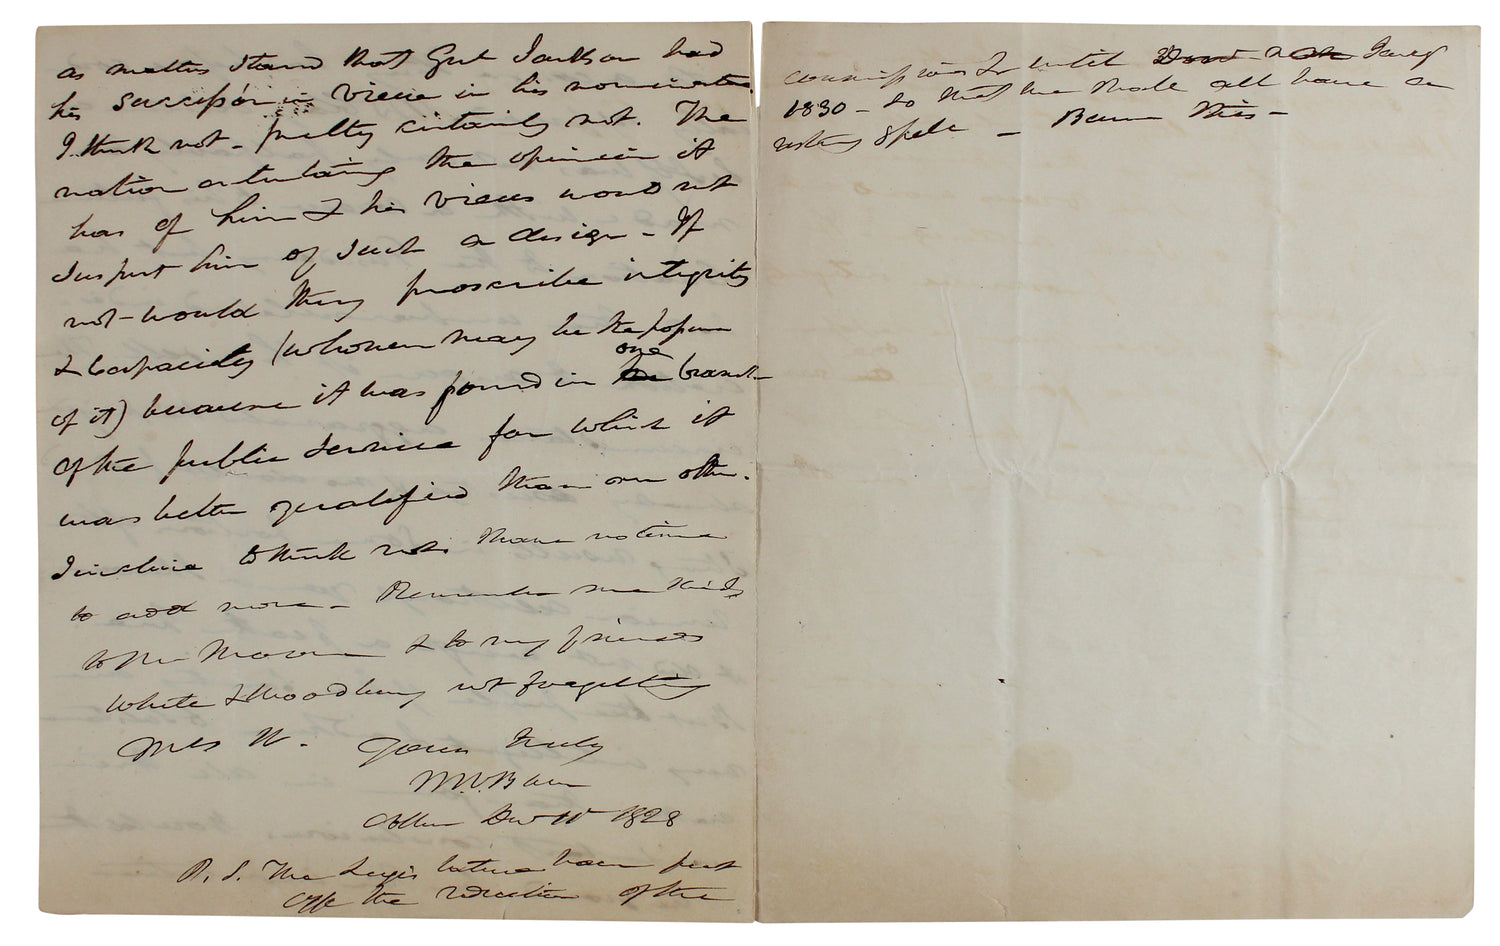 as matters stand that Genl Jackson had
his successor in view in his nominations
I think not - pretty certainly not. The
nation entertaining the opinion it
has of him & his views would not
suspect him of such a design - If
not - would they proscribe integrity
& Capacity (whoever may be the
of it) because it was found in one branch
of the public service for which it
was better qualified than any other.
I incline to think not. I have no time
to add more - Remember me kindly
to Mr & to my friends
White & Woodbury not forgetting
Mrs W. Yours truly
M.V. Buren
Dec 1828
P. S. The Legislature have put
off the election of the
commissioners &c until Jany
1830 - so that we shall all have a
spell - Burn this -